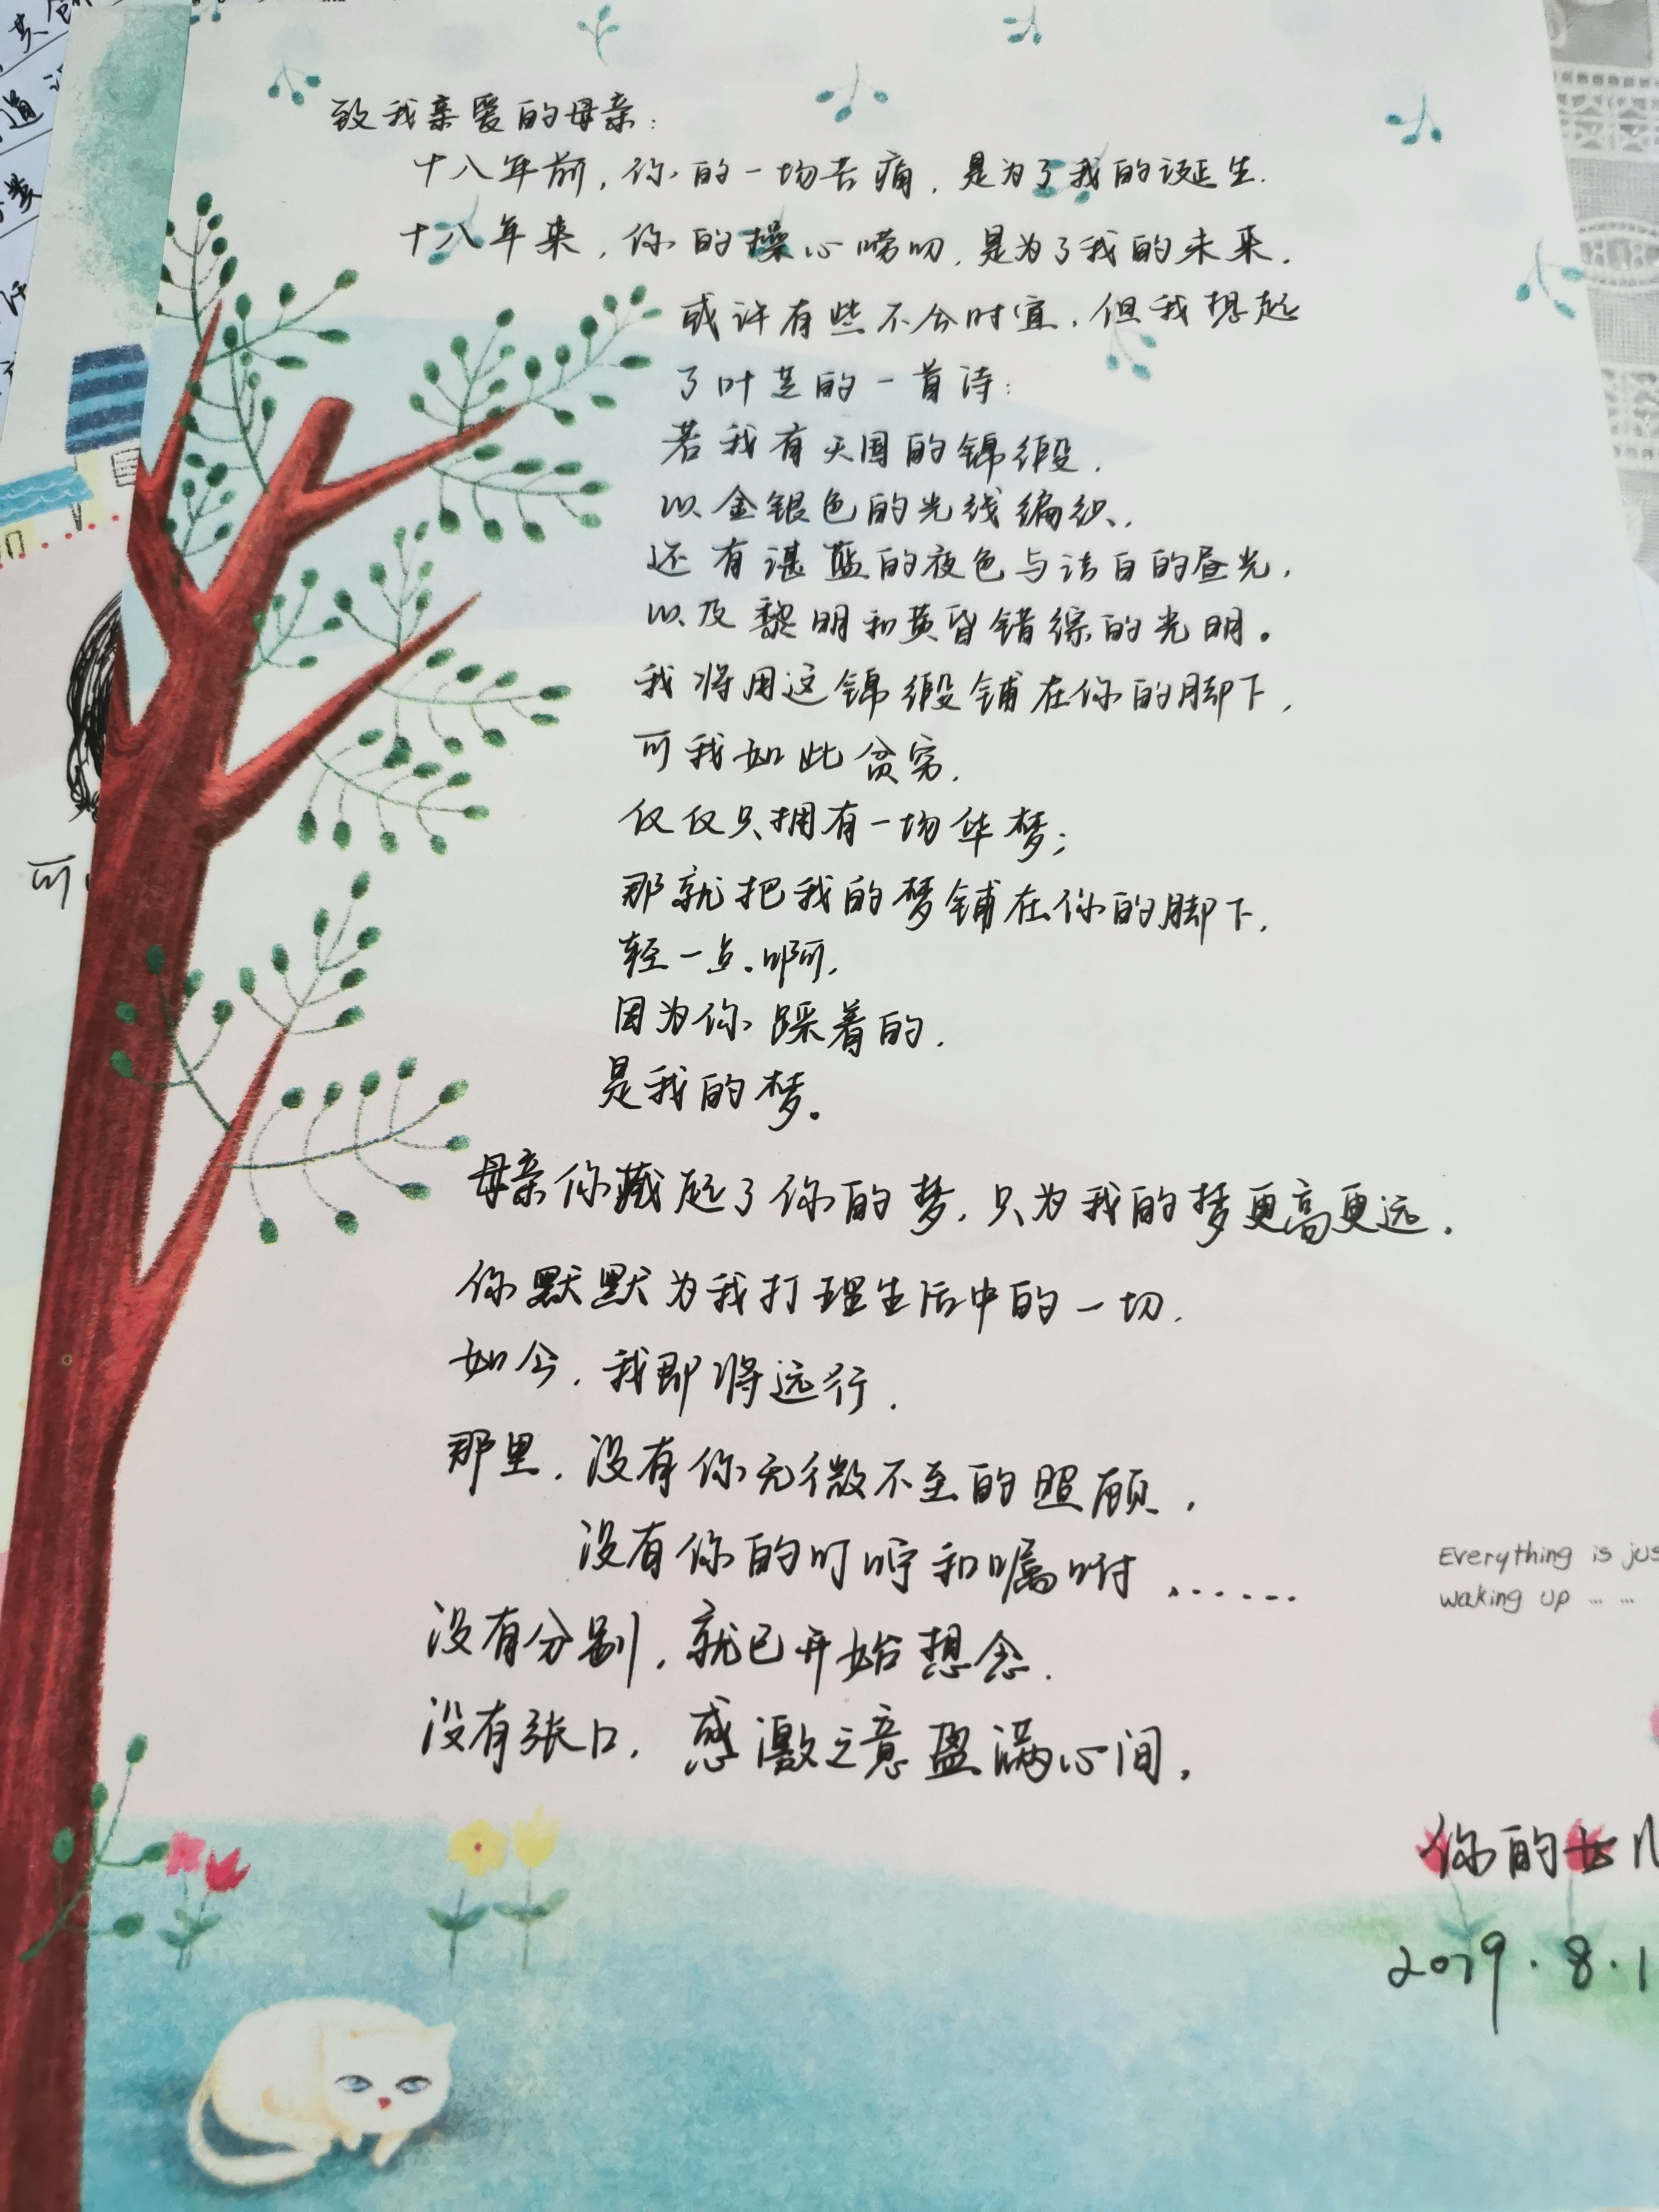 致我亲爱的母亲：
十八年前，你的一场苦痛，是为了我的诞生.
十八年来，你的操心唠叨，是为了我的未来.
或许有些不合时宜，但我想起
了叶芝的一首诗：
若我有天国的锦缎，
以金银色的光线编织，
还有湛蓝的夜色与洁白的昼光，
以及黎明和黄昏错综的光明。
我将用这锦缎铺在你的脚下，
可我如此贫穷，
仅仅只拥有一场华梦；
那就把我的梦铺在你的脚下，
轻一点。啊，
因为你踩着的，
是我的梦。
母亲你藏起了你的梦，只为我的梦更高更远，
你默默为我打理生活中的一切.
如今，我即将远行.
那里，没有你无微不至的照顾，
没有你的叮咛和嘱咐，......
没有分别，就已开始想念.
没有张口，感激之意盈满心间，
Everything is jus
waking up ... ...
你的女儿
2019.8.1
可
道